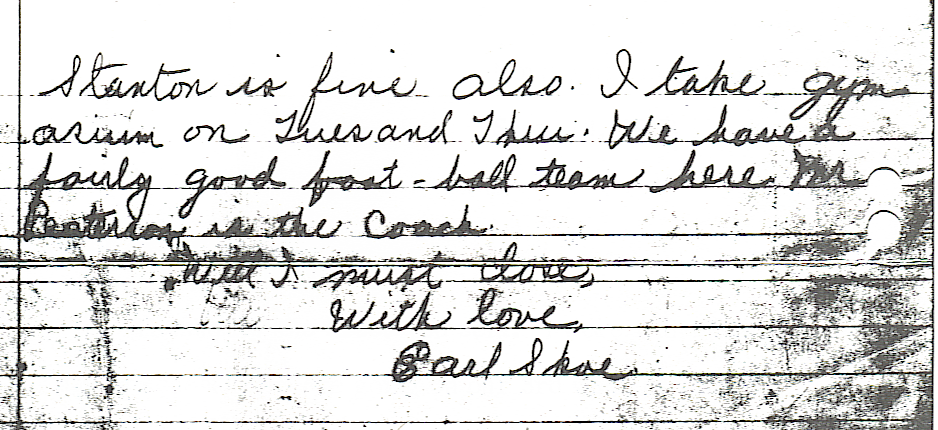 Stanton is fine also. I take gym
asium on Tues and Thur. We have a
fairly good foot-ball team here. Mr
is the Coach.
Well I must close,
With love,
Earl Skoe.